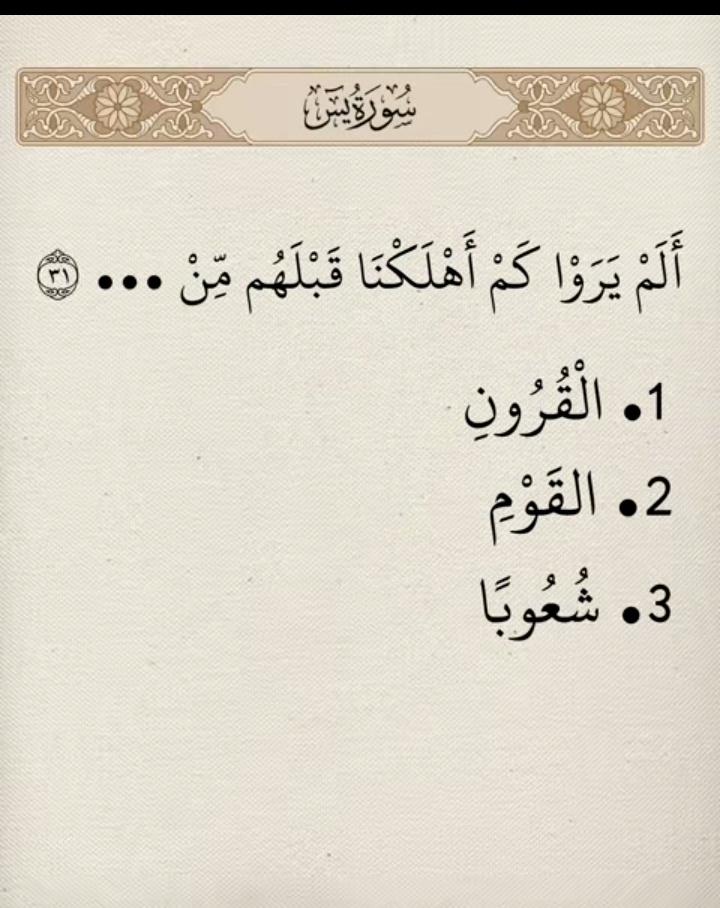 سُورَةُ يسٓ
أَلَمْ يَرَوْا كَمْ أَهْلَكْنَا قَبْلَهُم مِّنْ ••• ٣١
1• الْقُرُونِ
2• القَوْمِ
3• شُعُوبًا